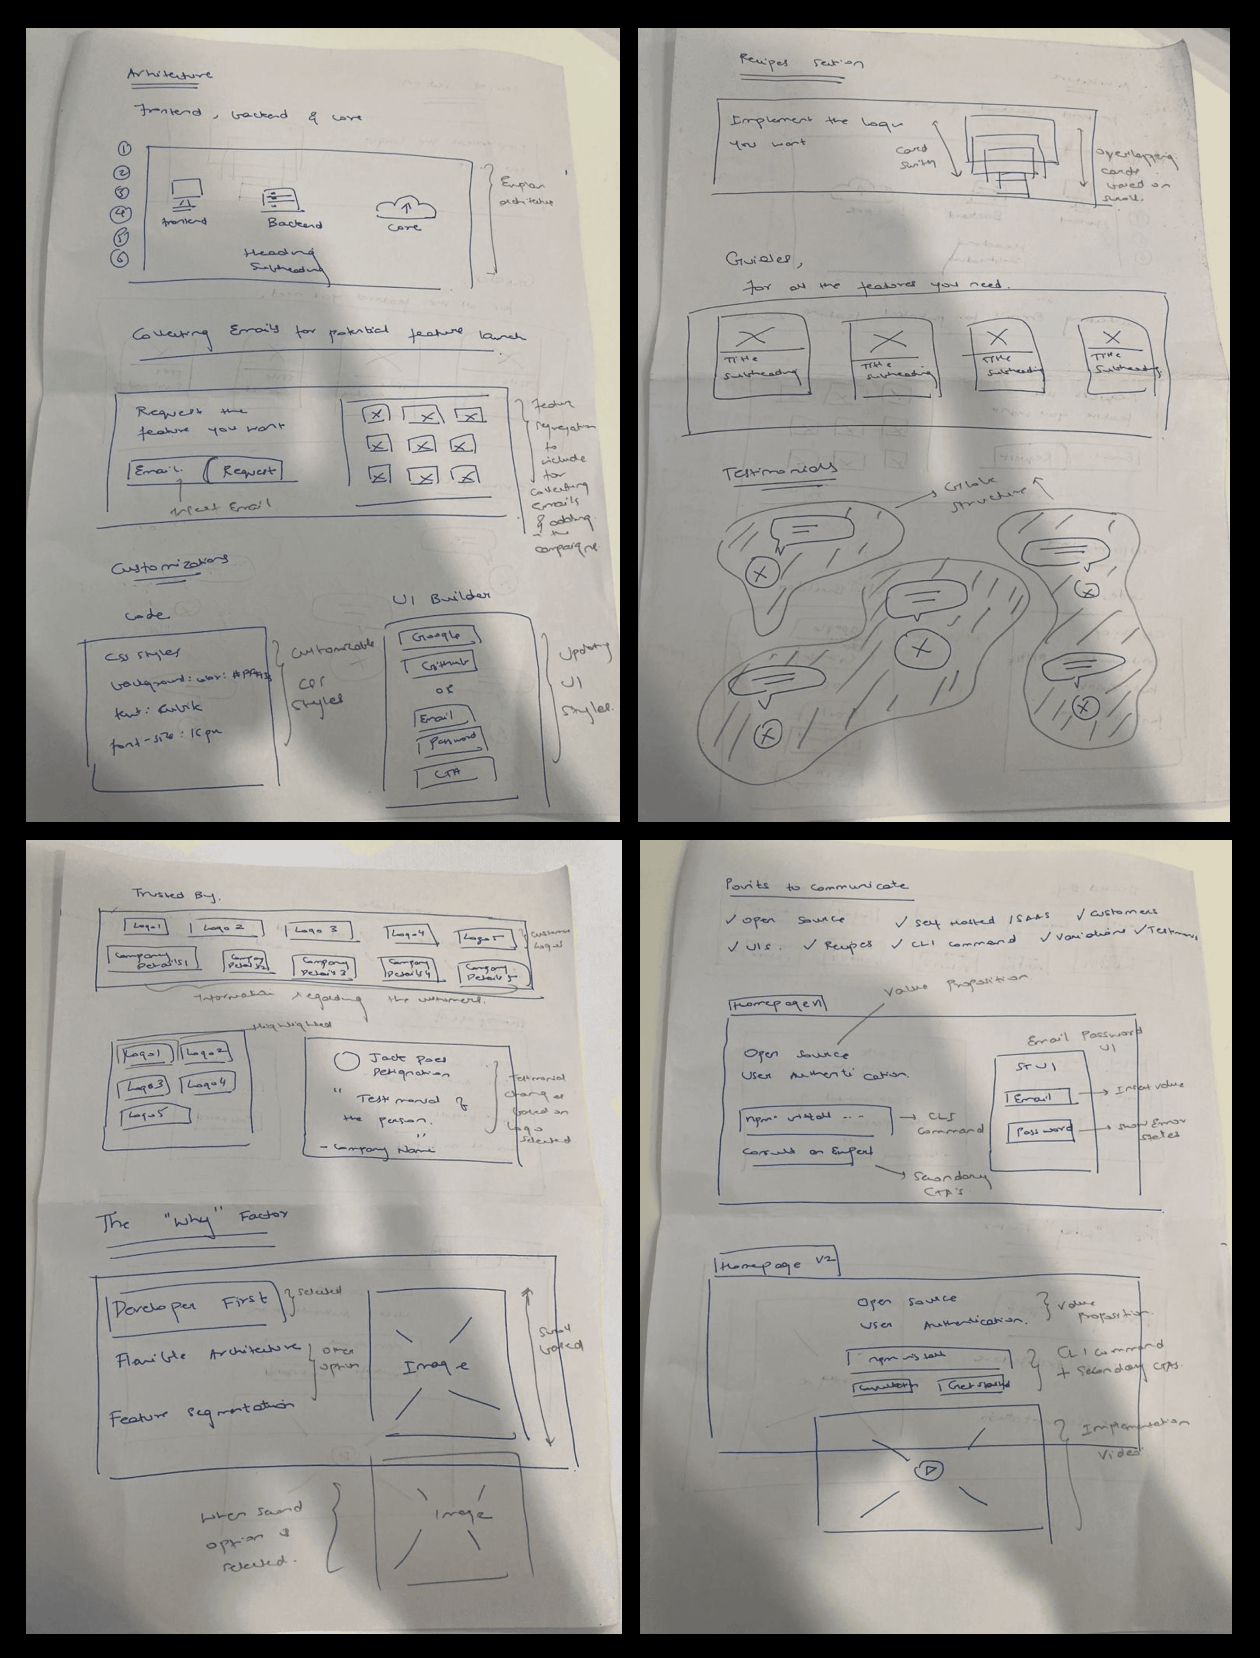 Architecture
Frontend, backend & core
1
2
3
4
5
6
frontend
Backend
core
Heading
Subheading
Explain
architecture
Collecting Emails for potential feature launch
Request the
feature you want
Email
Request
insert Email
Feature
segregation
to
include
for
collecting
Emails
& adding
in the
campaigns
Customizations
code
CSS Styles
background: color:
font: Rubik
font-size: 16px
customizable
CSS
styles
UI Builder
Google
Github
OR
Email
Password
CTA
Updating
UI
styles.
Recipes section
Implement the login
you want
card
switch
overlapping
cards
based on
scroll.
Guides,
for all the features you need.
Title
Subheading
Title
Subheading
Title
Subheading
Title
Subheading
Testimonials
Globe
structure
Trusted By.
Logo1
Logo 2
Logo 3
Logo4
Logo5
Company
Details1
Company
Details2
Company
Details3
Company
Details4
Company
Details5
customer
Logos
Information regarding the customers.
Highlighted
Logo1
Logo2
Logo3
Logo4
Logo5
Jack Does
Designation
" Testimonial of
the person. "
- Company Name
Testimonial
changes
based on
Logo
selected
The "Why" Factor
Developer First
selected
Flexible Architecture
other
option
Feature Segmentation
Image
Scroll
based
When second
option is
selected.
Image
Points to communicate
✓ Open Source ✓ Self Hosted / SAAS ✓ Customers
✓ UIs. ✓ Recipes ✓ CLI Command ✓ Variations ✓ Testimonials
Homepage V1
Value Proposition
Open Source
User Authentication.
npm install ...
CLI
Command
Consult an Expert
Secondary
CTA's
Email Password
UI
ST UI
Email
Insert value
Password
show Error
states
Homepage V2
Open Source
User Authentication.
Value
Proposition.
npm install
Get started
CLI command
+ Secondary CTAs.
Implementation
Video